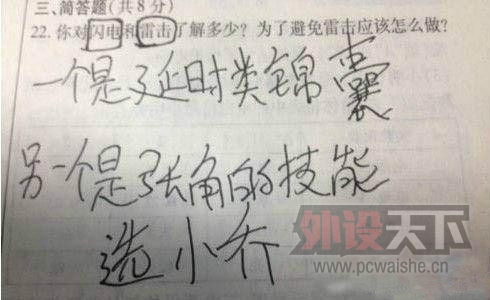 三、简答题(共8分)
22. 你对闪电和雷击了解多少？为了避免雷击应该怎么做？
一个是延时类锦囊
另一个是张角的技能
选小乔
外设天下
www.pcwaishe.cn